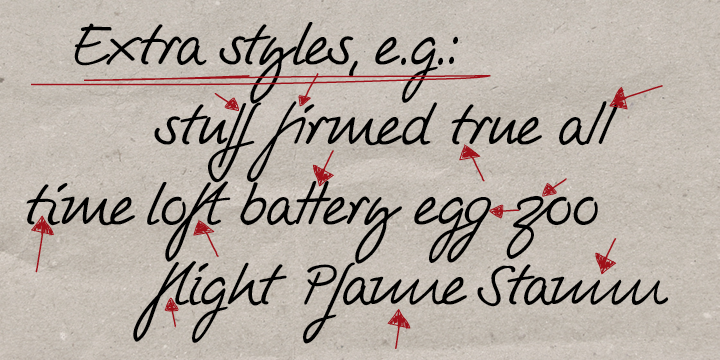 Extra styles, e.g.:
stuff firmed true all
time loft battery egg zoo
flight Pfanne Stamm